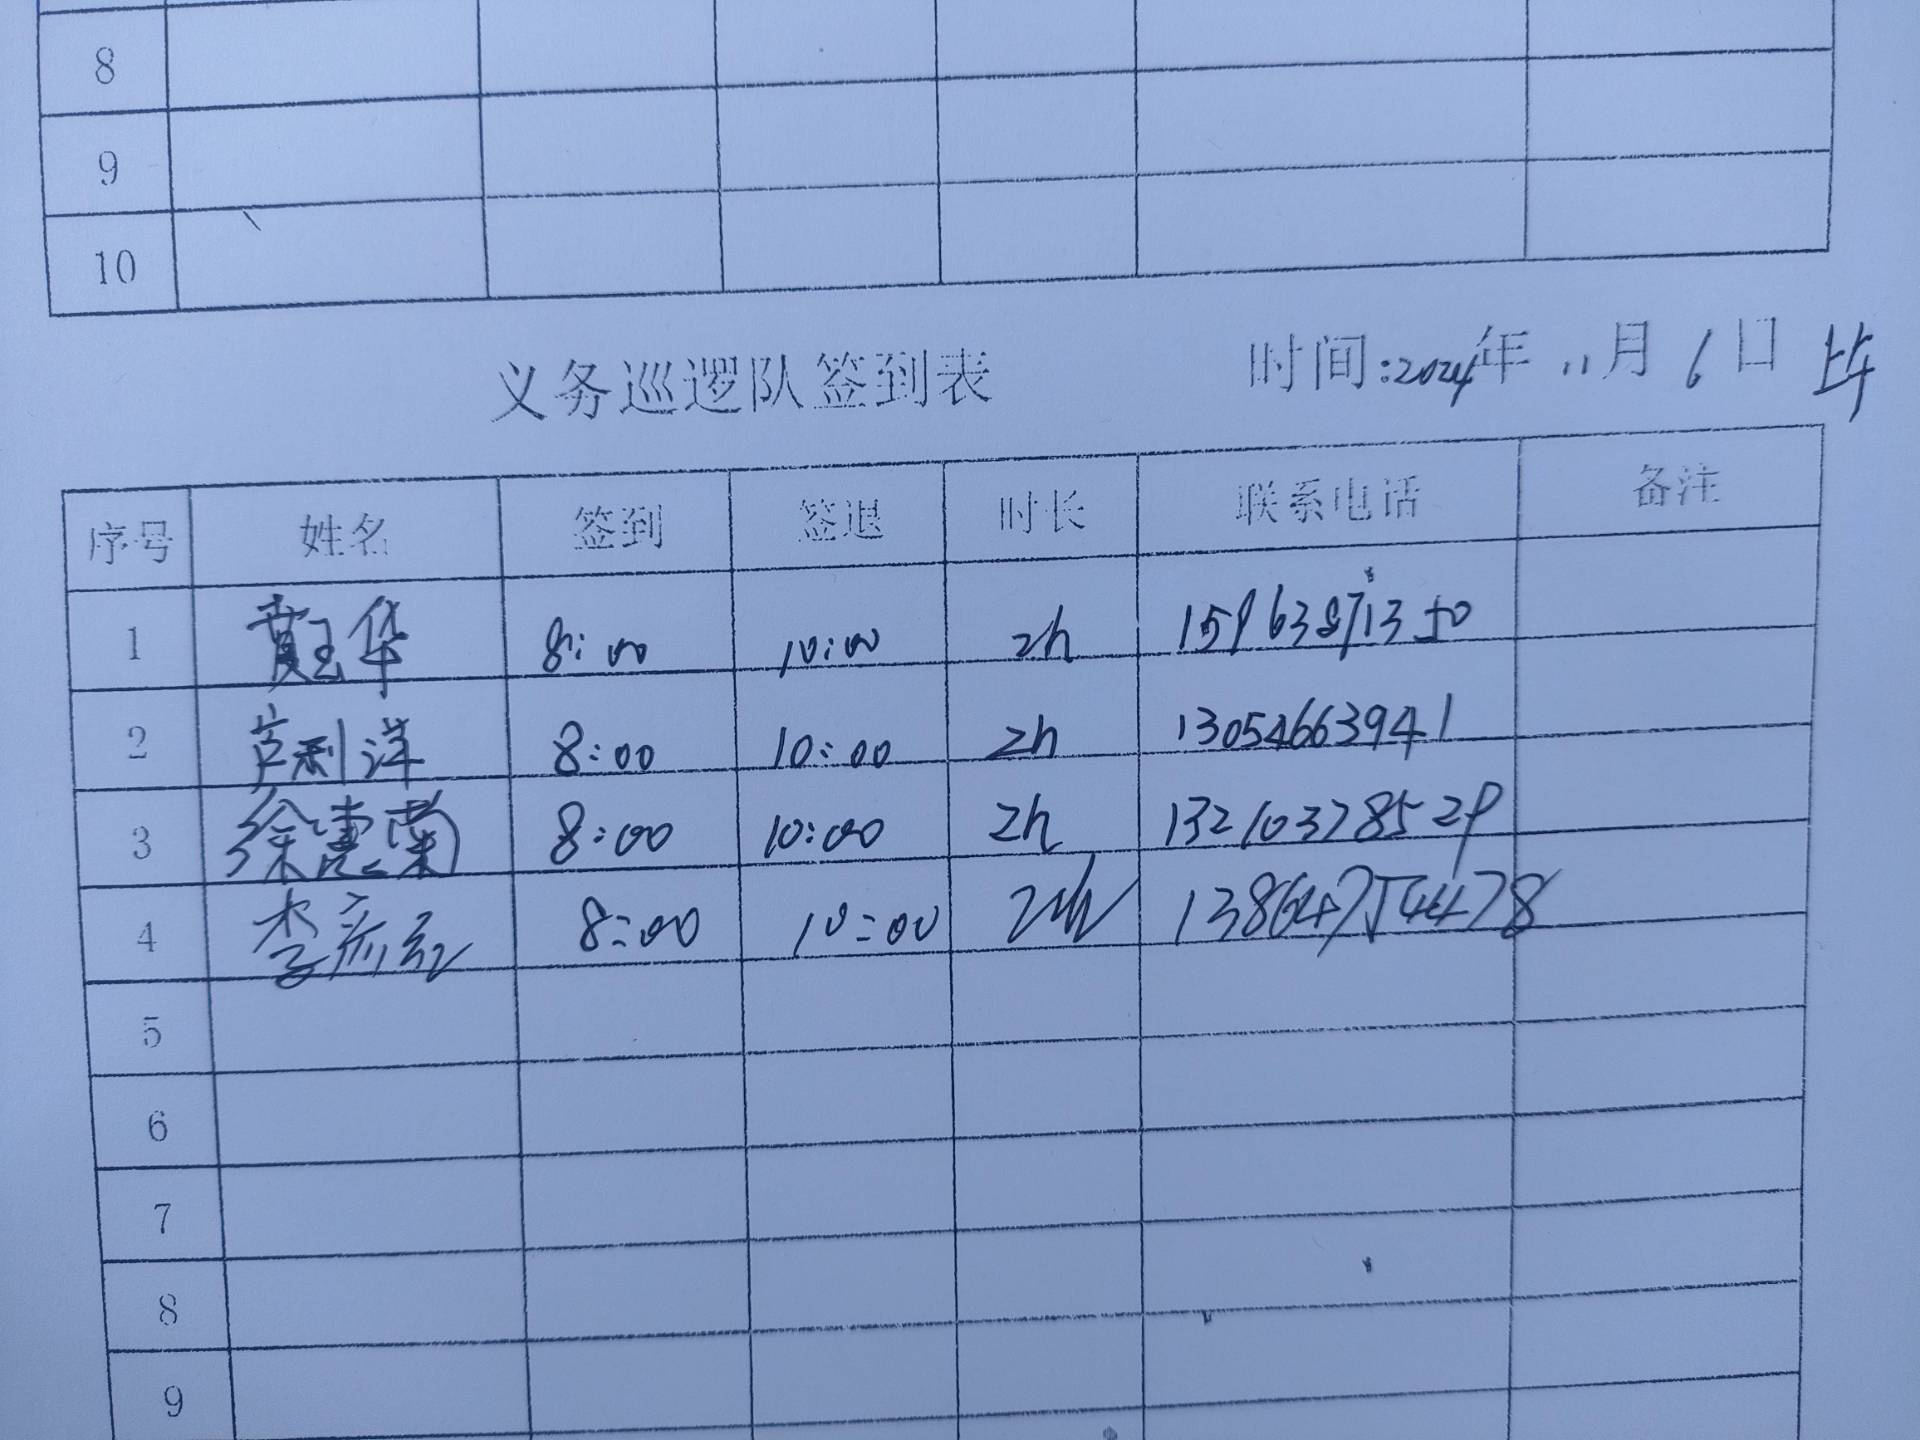 8
9
10
义务巡逻队签到表 时间:2024年 11月 6日 上午
序号 姓名 签到 签退 时长 联系电话 备注
1 黄玉华 8:00 10:00 2h 15963871350
2 芦利洋 8:00 10:00 2h 13054663941
3 徐惠菊 8:00 10:00 2h 13210378529
4 李 红 8:00 10:00 2h 13864754478
5
6
7
8
9